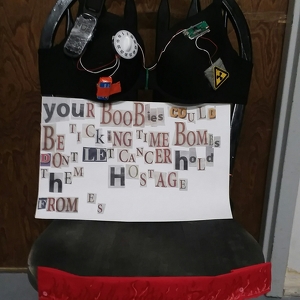 youR BOOBies COULD
BE TICKING TIME BOMbs
DONT LET CANCER hold
THEM HOSTAGE
FROM ES